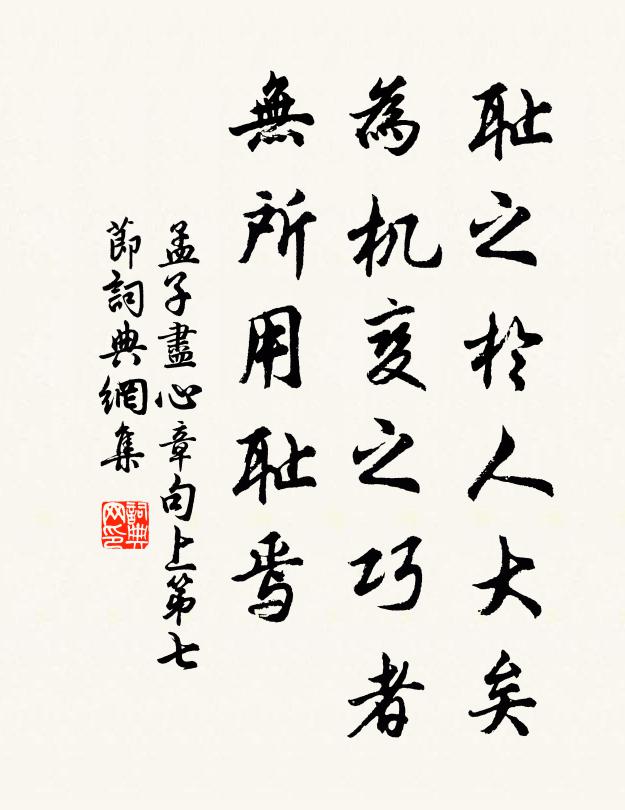 耻之於人大矣
為机变之巧者
無所用耻焉
孟子盡心章句上第七
節詞典網集
詞典
网印